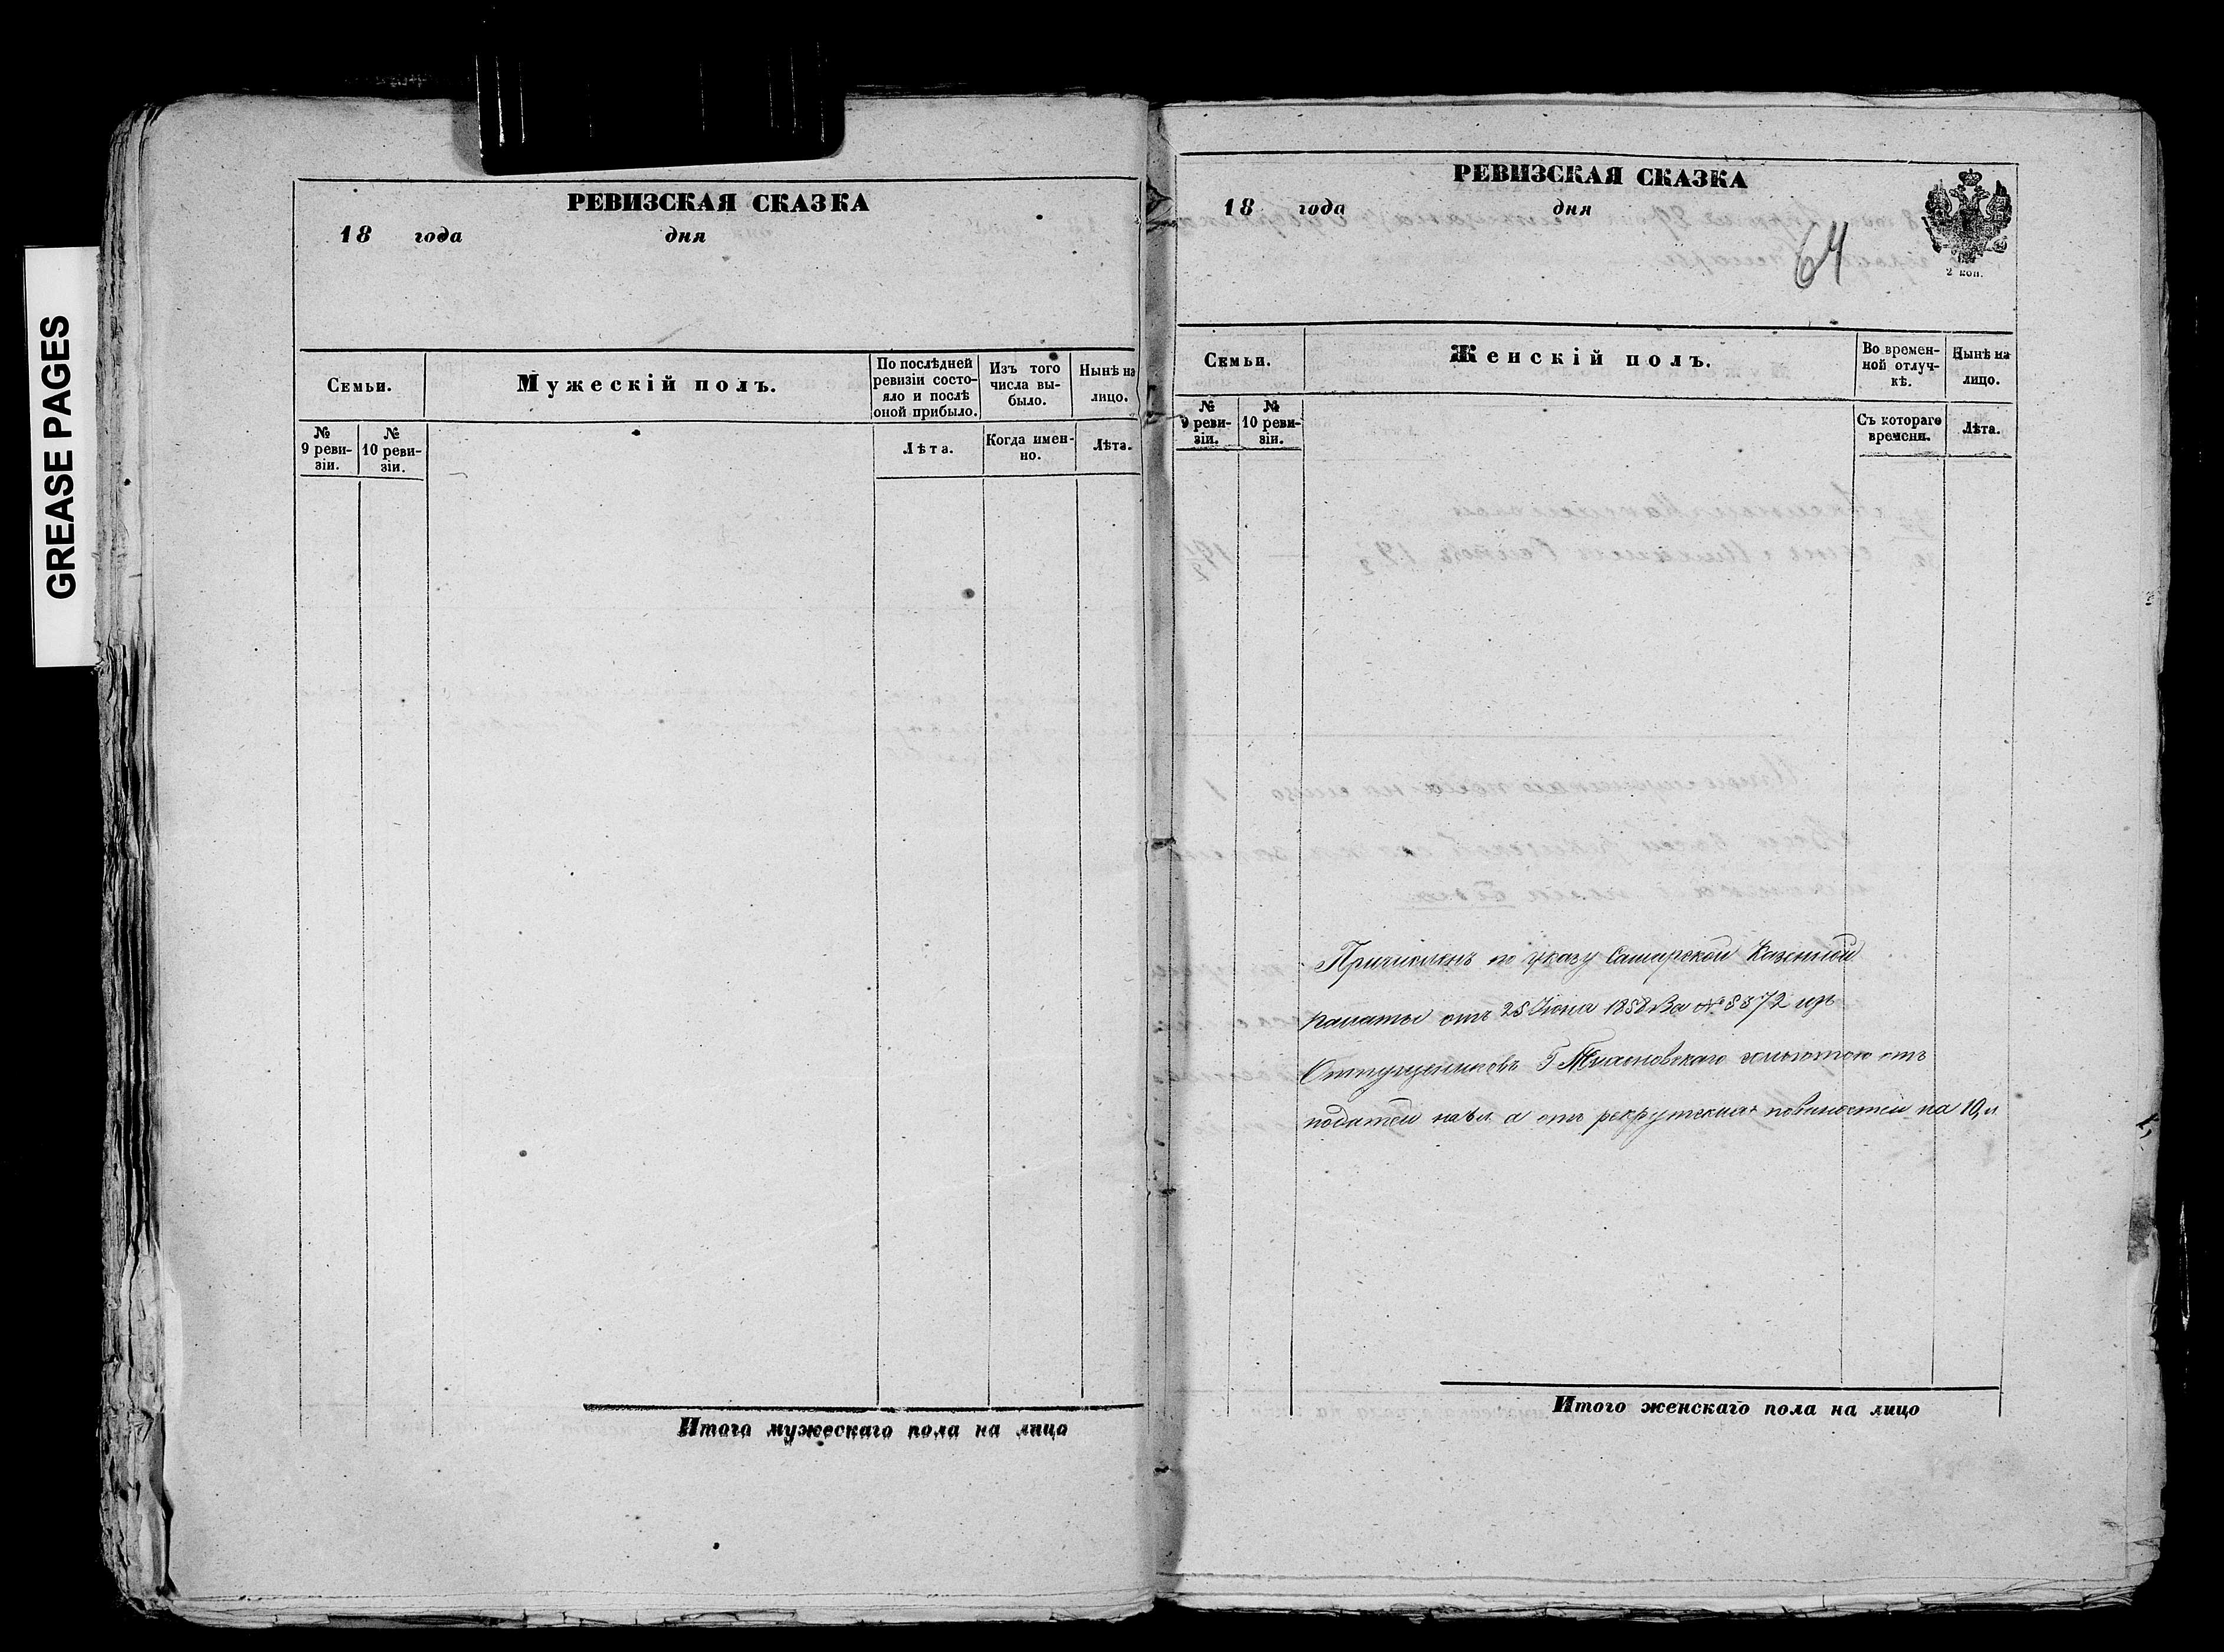 GREASE PAGES
РЕВИЗСКАЯ СКАЗКА
18 года дня
Семьи.
Мужескій полъ.
По послѣдней ревизіи состояло и послѣ оной прибыло.
Изъ того числа выбыло.
Нынѣ на лицо.
№ 9 ревизіи.
№ 10 ревизіи.
Лѣта.
Когда именно.
Лѣта.
Итого мужескаго пола на лицо
РЕВИЗСКАЯ СКАЗКА
18 года дня
64
2 коп.
Семьи.
Женскій полъ.
Во временной отлучкѣ.
Нынѣ на лицо.
№ 9 ревизіи.
№ 10 ревизіи.
Съ котораго времени.
Лѣта.
Причисленъ по указу Самарской Казенной
Палаты отъ 25 Іюня 1858 За № 8372 изъ
Отпущенниковъ Г льготою отъ
податей на а отъ рекрутских повиностей на 10 л
Итого женскаго пола на лицо